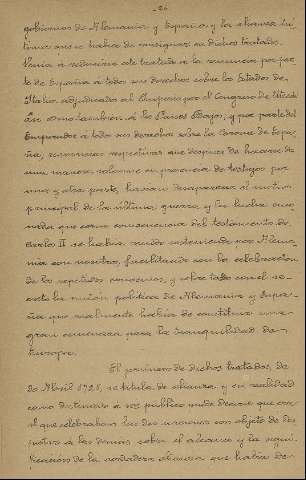 86
gobiernos de Alemania y España y la alianza ín-
tima que se había de consignar en dichos tratados.
Venía á reducirse este tratado á la renuncia por par-
te de España á todos sus derechos sobre los Estados de
Italia adjudicados al Emperador por el Congreso de Utrech
así como también á los Paises Bajos, y por parte del
Emperador á todos sus derechos sobre la Corona de Espa-
ña, renuncias respectivas que después de hacerse de
una manera solemne en presencia de testigos por
una y otra parte, hacían desaparecer el motivo
principal de la última guerra, y la lucha
que como consecuencia del testamento de
Carlos II se había sosteniendo con Alema-
nia con nosotros, facilitando con la celebración
de los repetidos convenios, y sobre todo con el se-
creto la unión política de Alemania y Espa-
ña que realmente había de constituir una
gran amenaza para la tranquilidad de
Europa.
El primero de dichos tratados, de
30 Abril 1725, se titula de alianza, y en realidad
como destinado á ser público puede decirse que con
el que celebraban las dos naciones con objeto de des-
pistar á las demás sobre el alcance y la signi-
ficación de la verdadera alianza que había de